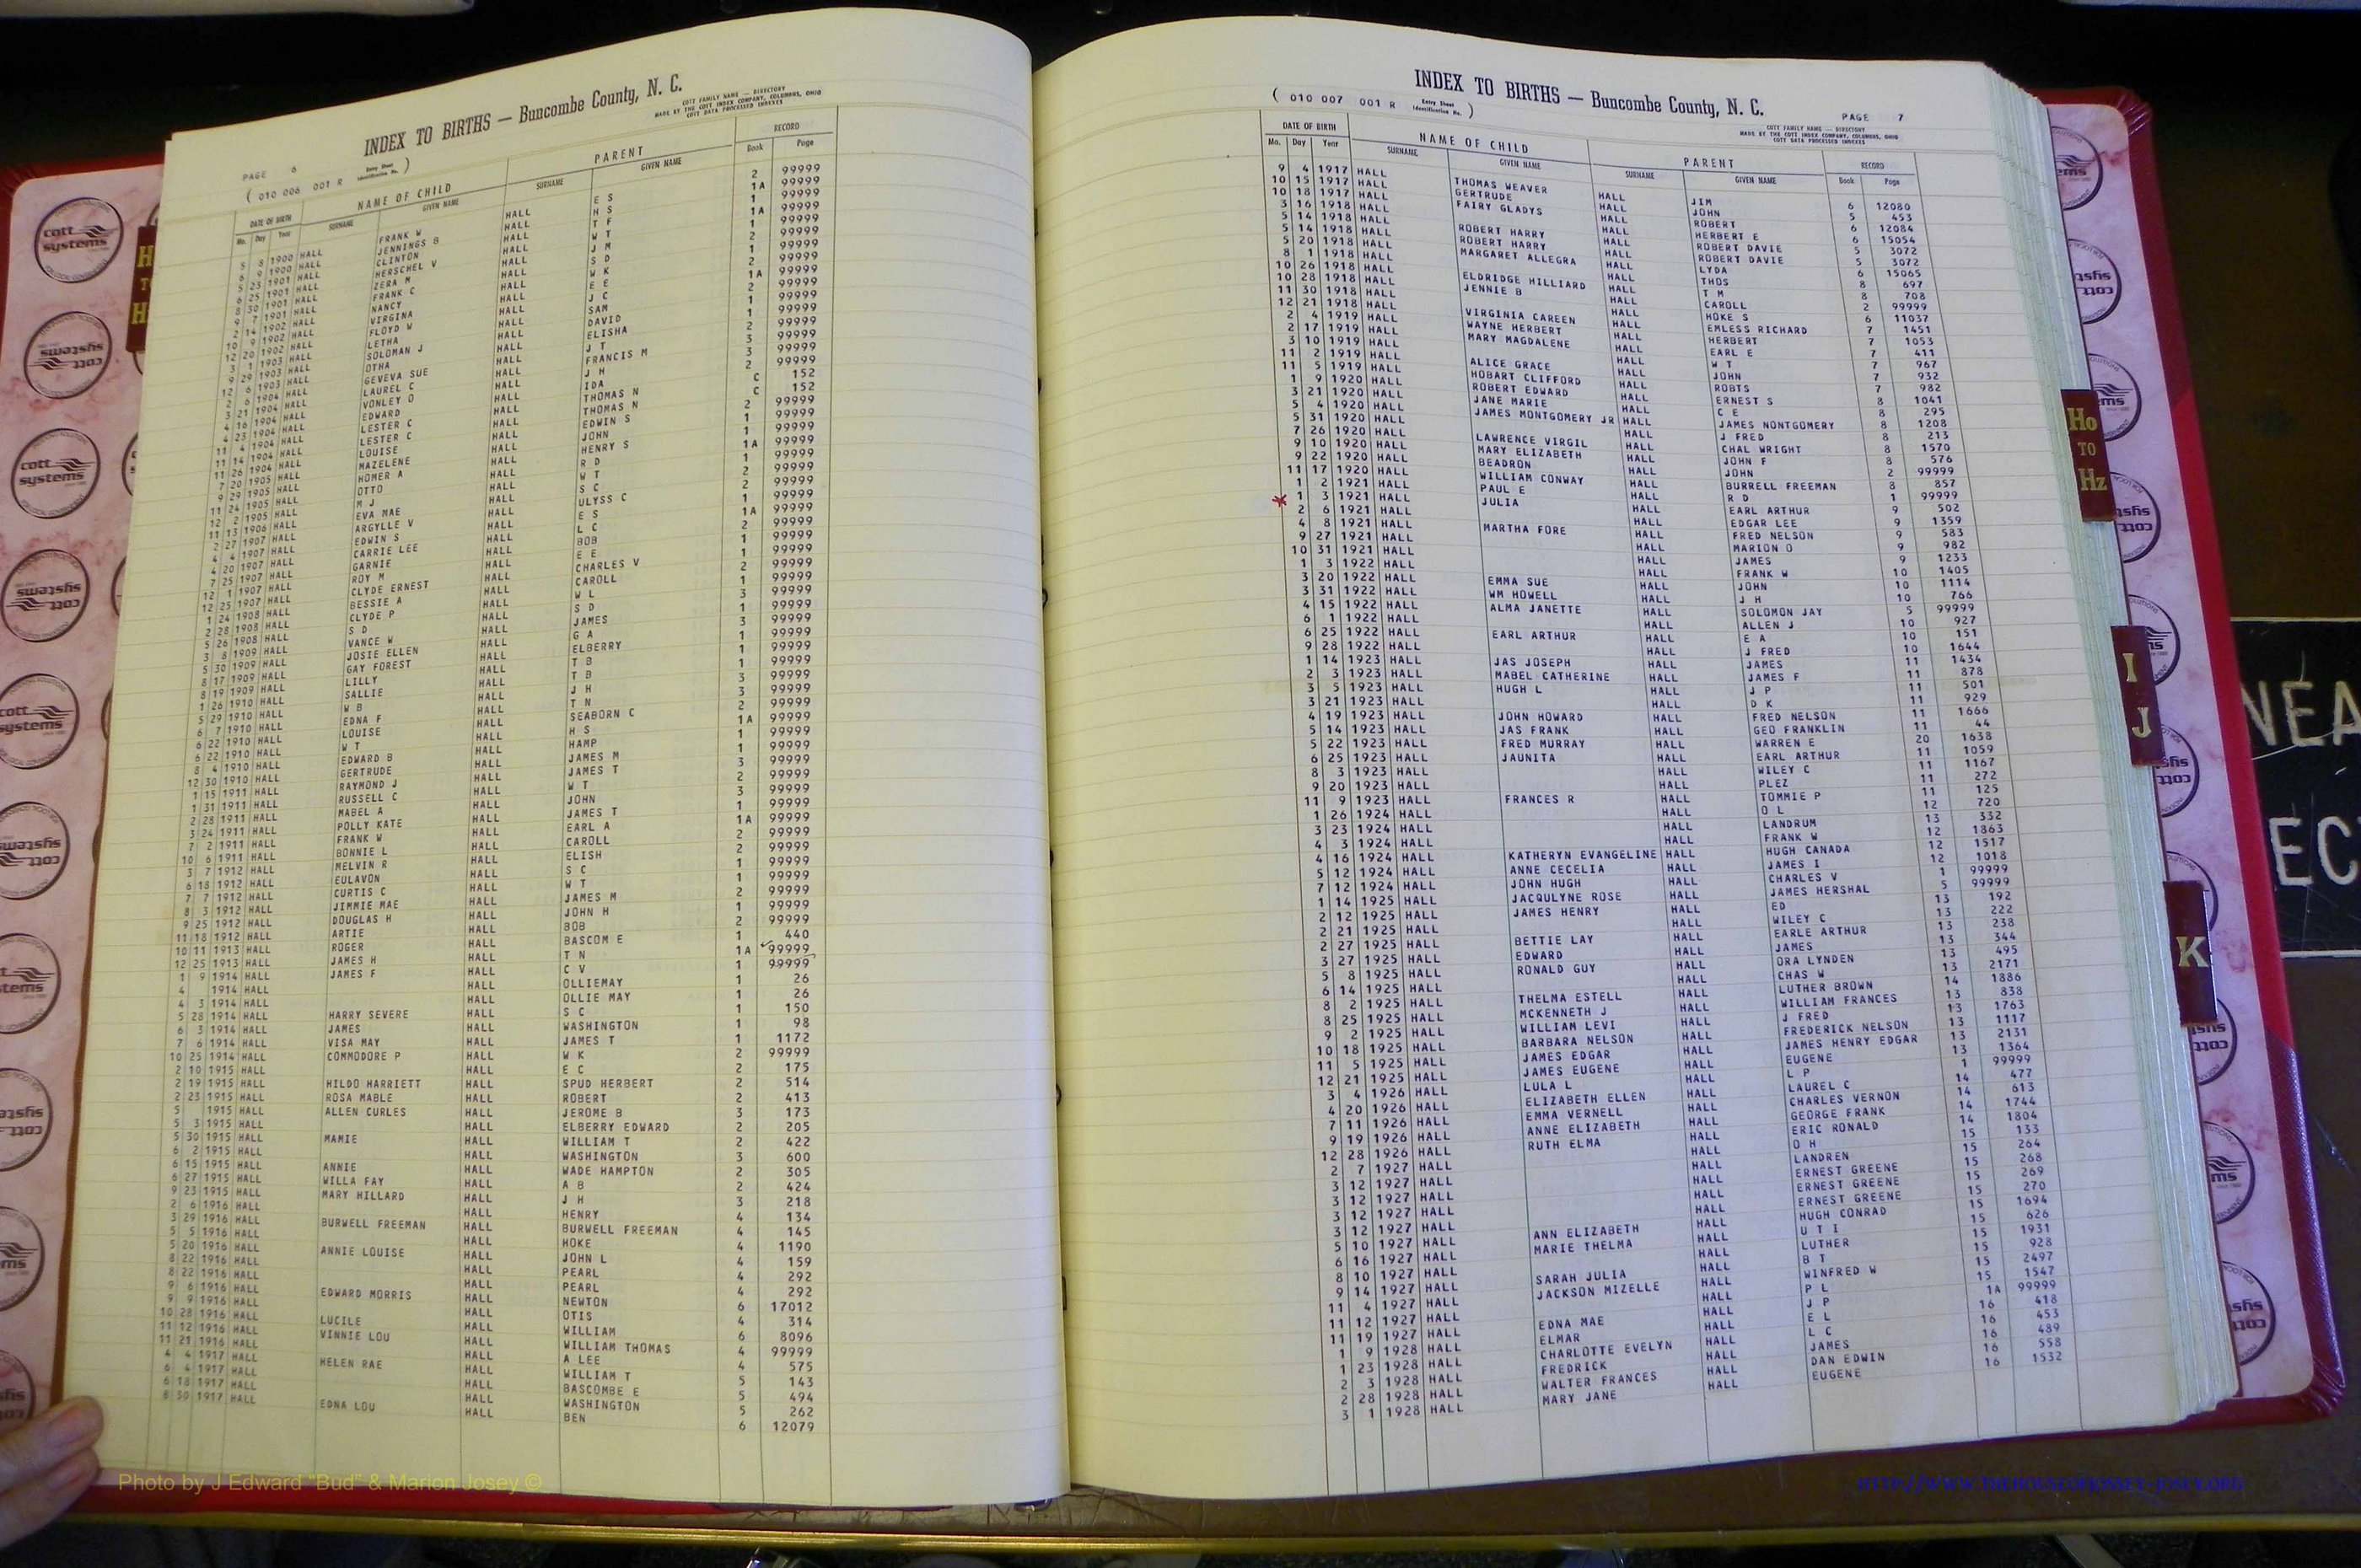 INDEX TO BIRTHS — Buncombe County, N. C.
COTT FAMILY NAME — DIRECTORY
MADE BY THE COTT INDEX COMPANY, COLUMBUS, OHIO
COTT DATA PROCESSED INDEXES
PAGE 6
( 010 006 001 R Entry Sheet Identification No. )
DATE OF BIRTH NAME OF CHILD PARENT RECORD
Mo. Day Year SURNAME GIVEN NAME SURNAME GIVEN NAME Book Page
5 8 1900 HALL FRANK W HALL E S 2 99999
6 9 1900 HALL JENNINGS B HALL H S 1A 99999
5 23 1901 HALL CLINTON HALL T F 1 99999
6 25 1901 HALL HERSCHEL V HALL W T 1A 99999
8 30 1901 HALL ZERA M HALL J M 1 99999
9 7 1901 HALL FRANK C HALL S D 2 99999
2 14 1902 HALL NANCY HALL W K 1 99999
10 9 1902 HALL VIRGINA HALL E E 2 99999
12 20 1902 HALL FLOYD W HALL J C 1A 99999
3 1 1903 HALL LETHA HALL SAM 2 99999
9 29 1903 HALL SOLOMAN J HALL DAVID 1 99999
12 6 1903 HALL OTHA HALL ELISHA 1 99999
2 6 1904 HALL GEVEVA SUE HALL J T 2 99999
3 21 1904 HALL LAUREL C HALL FRANCIS M 3 99999
4 16 1904 HALL VONLEY O HALL J H 3 99999
4 23 1904 HALL EDWARD HALL IDA 2 99999
11 4 1904 HALL LESTER C HALL THOMAS N C 152
11 14 1904 HALL LESTER C HALL THOMAS N C 152
11 26 1904 HALL LOUISE HALL EDWIN S 2 99999
7 20 1905 HALL MAZELENE HALL JOHN 1 99999
9 29 1905 HALL HOMER A HALL HENRY S 1 99999
11 24 1905 HALL OTTO HALL R D 1A 99999
12 2 1905 HALL M J HALL W T 1 99999
11 13 1906 HALL EVA MAE HALL S C 2 99999
2 27 1907 HALL ARGYLLE V HALL ULYSS C 2 99999
4 4 1907 HALL EDWIN S HALL E S 1 99999
4 20 1907 HALL CARRIE LEE HALL L C 1A 99999
7 25 1907 HALL GARNIE HALL BOB 2 99999
12 1 1907 HALL ROY M HALL E E 1 99999
12 25 1907 HALL CLYDE ERNEST HALL CHARLES V 1 99999
1 24 1908 HALL BESSIE A HALL CAROLL 2 99999
2 28 1908 HALL CLYDE P HALL W L 1 99999
5 26 1908 HALL S D HALL S D 3 99999
3 8 1909 HALL VANCE W HALL JAMES 1 99999
5 30 1909 HALL JOSIE ELLEN HALL G A 3 99999
8 17 1909 HALL GAY FOREST HALL ELBERRY 1 99999
8 19 1909 HALL LILLY HALL T B 1 99999
1 26 1910 HALL SALLIE HALL T B 1 99999
5 29 1910 HALL W B HALL J H 3 99999
6 7 1910 HALL EDNA F HALL T N 3 99999
6 22 1910 HALL LOUISE HALL SEABORN C 2 99999
6 22 1910 HALL W T HALL H S 1A 99999
8 4 1910 HALL EDWARD B HALL HAMP 1 99999
12 30 1910 HALL GERTRUDE HALL JAMES M 1 99999
1 15 1911 HALL RAYMOND J HALL JAMES T 3 99999
1 31 1911 HALL RUSSELL C HALL W T 2 99999
2 28 1911 HALL MABEL A HALL JOHN 3 99999
3 24 1911 HALL POLLY KATE HALL JAMES T 1 99999
7 2 1911 HALL FRANK W HALL EARL A 1A 99999
10 6 1911 HALL BONNIE L HALL CAROLL 2 99999
3 7 1912 HALL MELVIN R HALL ELISH 2 99999
6 18 1912 HALL EULAVON HALL S C 1 99999
7 7 1912 HALL CURTIS C HALL W T 1 99999
8 3 1912 HALL JIMMIE MAE HALL JAMES M 2 99999
9 25 1912 HALL DOUGLAS H HALL JOHN H 1 99999
11 18 1912 HALL ARTIE HALL BOB 2 99999
10 11 1913 HALL ROGER HALL BASCOM E 1 440
12 25 1913 HALL JAMES H HALL T N 1A 99999
1 9 1914 HALL JAMES F HALL C V 1 99999
4 1914 HALL HALL OLLIEMAY 1 26
4 3 1914 HALL HALL OLLIE MAY 1 26
5 28 1914 HALL HARRY SEVERE HALL S C 1 150
6 3 1914 HALL JAMES HALL WASHINGTON 1 98
7 6 1914 HALL VISA MAY HALL JAMES T 1 1172
10 25 1914 HALL COMMODORE P HALL W K 2 99999
2 10 1915 HALL HALL E C 2 175
2 19 1915 HALL HILDO HARRIETT HALL SPUD HERBERT 2 514
2 23 1915 HALL ROSA MABLE HALL ROBERT 2 413
5 1915 HALL ALLEN CURLES HALL JEROME B 3 173
5 3 1915 HALL HALL ELBERRY EDWARD 2 205
5 30 1915 HALL MAMIE HALL WILLIAM T 2 422
6 2 1915 HALL HALL WASHINGTON 3 600
6 15 1915 HALL ANNIE HALL WADE HAMPTON 2 305
6 27 1915 HALL WILLA FAY HALL A B 2 424
9 23 1915 HALL MARY HILLARD HALL J H 3 218
2 6 1916 HALL HALL HENRY 4 134
3 29 1916 HALL BURWELL FREEMAN HALL BURWELL FREEMAN 4 145
5 5 1916 HALL HALL HOKE 4 1190
5 20 1916 HALL ANNIE LOUISE HALL JOHN L 4 159
8 22 1916 HALL HALL PEARL 4 292
8 22 1916 HALL HALL PEARL 4 292
9 6 1916 HALL EDWARD MORRIS HALL NEWTON 6 17012
9 9 1916 HALL HALL OTIS 4 314
10 28 1916 HALL LUCILE HALL WILLIAM 6 8096
11 12 1916 HALL VINNIE LOU HALL WILLIAM THOMAS 4 99999
11 21 1916 HALL HALL A LEE 4 575
4 4 1917 HALL HELEN RAE HALL WILLIAM T 5 143
6 4 1917 HALL HALL BASCOMBE E 5 494
6 18 1917 HALL HALL WASHINGTON 5 262
8 30 1917 HALL EDNA LOU HALL BEN 6 12079
INDEX TO BIRTHS — Buncombe County, N. C.
( 010 007 001 R Entry Sheet Identification No. )
PAGE 7
COTT FAMILY NAME — DIRECTORY
MADE BY THE COTT INDEX COMPANY, COLUMBUS, OHIO
COTT DATA PROCESSED INDEXES
DATE OF BIRTH NAME OF CHILD PARENT RECORD
Mo. Day Year SURNAME GIVEN NAME SURNAME GIVEN NAME Book Page
9 4 1917 HALL THOMAS WEAVER HALL JIM 6 12080
10 15 1917 HALL GERTRUDE HALL JOHN 5 453
10 18 1917 HALL FAIRY GLADYS HALL ROBERT 6 12084
3 16 1918 HALL HALL HERBERT E 6 15054
5 14 1918 HALL ROBERT HARRY HALL ROBERT DAVIE 5 3072
5 14 1918 HALL ROBERT HARRY HALL ROBERT DAVIE 5 3072
5 20 1918 HALL MARGARET ALLEGRA HALL LYDA 6 15065
8 1 1918 HALL HALL THOS 8 697
10 26 1918 HALL ELDRIDGE HILLIARD HALL T M 8 708
10 28 1918 HALL JENNIE B HALL CAROLL 2 99999
11 30 1918 HALL HALL HOKE S 6 11037
12 21 1918 HALL VIRGINIA CAREEN HALL EMLESS RICHARD 7 1451
2 4 1919 HALL WAYNE HERBERT HALL HERBERT 7 1053
2 17 1919 HALL MARY MAGDALENE HALL EARL E 7 411
3 10 1919 HALL HALL W T 7 967
11 2 1919 HALL ALICE GRACE HALL JOHN 7 932
11 5 1919 HALL HOBART CLIFFORD HALL ROBTS 7 982
1 9 1920 HALL ROBERT EDWARD HALL ERNEST S 8 1041
3 21 1920 HALL JANE MARIE HALL C E 8 295
5 4 1920 HALL JAMES MONTGOMERY JR HALL JAMES MONTGOMERY 8 1208
5 31 1920 HALL HALL J FRED 8 213
7 26 1920 HALL LAWRENCE VIRGIL HALL CHAL WRIGHT 8 1570
9 10 1920 HALL MARY ELIZABETH HALL JOHN F 8 576
9 22 1920 HALL BEADRON HALL JOHN 2 99999
11 17 1920 HALL WILLIAM CONWAY HALL BURRELL FREEMAN 8 857
1 2 1921 HALL PAUL E HALL R D 1 99999
1 3 1921 HALL JULIA HALL EARL ARTHUR 9 502
2 6 1921 HALL HALL EDGAR LEE 9 1359
4 8 1921 HALL MARTHA FORE HALL FRED NELSON 9 583
9 27 1921 HALL HALL MARION O 9 982
10 31 1921 HALL HALL JAMES 9 1233
1 3 1922 HALL HALL FRANK W 10 1405
3 20 1922 HALL EMMA SUE HALL JOHN 10 1114
3 31 1922 HALL WM HOWELL HALL J H 10 766
4 15 1922 HALL ALMA JANETTE HALL SOLOMON JAY 5 99999
6 1 1922 HALL HALL ALLEN J 10 927
6 25 1922 HALL EARL ARTHUR HALL E A 10 151
9 28 1922 HALL HALL J FRED 10 1644
1 14 1923 HALL JAS JOSEPH HALL JAMES 11 1434
2 3 1923 HALL MABEL CATHERINE HALL JAMES F 11 878
3 5 1923 HALL HUGH L HALL J P 11 501
3 21 1923 HALL HALL D K 11 929
4 19 1923 HALL JOHN HOWARD HALL FRED NELSON 11 1666
5 14 1923 HALL JAS FRANK HALL GEO FRANKLIN 11 44
5 22 1923 HALL FRED MURRAY HALL WARREN E 20 1638
6 25 1923 HALL JAUNITA HALL EARL ARTHUR 11 1059
8 3 1923 HALL HALL WILEY C 11 1167
9 20 1923 HALL HALL PLEZ 11 272
11 9 1923 HALL FRANCES R HALL TOMMIE P 11 125
1 26 1924 HALL HALL O L 12 720
3 23 1924 HALL HALL LANDRUM 13 332
4 3 1924 HALL HALL FRANK W 12 1863
4 16 1924 HALL KATHERYN EVANGELINE HALL HUGH CANADA 12 1517
5 12 1924 HALL ANNE CECELIA HALL JAMES I 12 1018
7 12 1924 HALL JOHN HUGH HALL CHARLES V 1 99999
1 14 1925 HALL JACQULYNE ROSE HALL JAMES HERSHAL 5 99999
2 12 1925 HALL JAMES HENRY HALL ED 13 192
2 21 1925 HALL HALL WILEY C 13 222
2 27 1925 HALL BETTIE LAY HALL EARLE ARTHUR 13 238
3 27 1925 HALL EDWARD HALL JAMES 13 344
5 8 1925 HALL RONALD GUY HALL ORA LYNDEN 13 495
6 14 1925 HALL HALL CHAS W 13 2171
8 2 1925 HALL THELMA ESTELL HALL LUTHER BROWN 14 1886
8 25 1925 HALL MCKENNETH J HALL WILLIAM FRANCES 13 838
9 2 1925 HALL WILLIAM LEVI HALL J FRED 13 1763
10 18 1925 HALL BARBARA NELSON HALL FREDERICK NELSON 13 1117
11 5 1925 HALL JAMES EDGAR HALL JAMES HENRY EDGAR 13 2131
12 21 1925 HALL JAMES EUGENE HALL EUGENE 13 1364
3 4 1926 HALL LULA L HALL L P 1 99999
4 20 1926 HALL ELIZABETH ELLEN HALL LAUREL C 14 477
7 11 1926 HALL EMMA VERNELL HALL CHARLES VERNON 14 613
9 19 1926 HALL ANNE ELIZABETH HALL GEORGE FRANK 14 1744
12 28 1926 HALL RUTH ELMA HALL ERIC RONALD 14 1804
2 7 1927 HALL HALL O H 15 133
3 12 1927 HALL HALL LANDREN 15 264
3 12 1927 HALL HALL ERNEST GREENE 15 268
3 12 1927 HALL HALL ERNEST GREENE 15 269
3 12 1927 HALL HALL ERNEST GREENE 15 270
5 10 1927 HALL ANN ELIZABETH HALL HUGH CONRAD 15 1694
6 16 1927 HALL MARIE THELMA HALL U T I 15 626
8 10 1927 HALL HALL LUTHER 15 1931
9 14 1927 HALL SARAH JULIA HALL B T 15 928
11 4 1927 HALL JACKSON MIZELLE HALL WINFRED W 15 2497
11 12 1927 HALL HALL P L 15 1547
11 19 1927 HALL EDNA MAE HALL J P 1A 99999
1 9 1928 HALL ELMAR HALL E L 16 418
1 23 1928 HALL CHARLOTTE EVELYN HALL L C 16 453
2 3 1928 HALL FREDRICK HALL JAMES 16 489
2 28 1928 HALL WALTER FRANCES HALL DAN EDWIN 16 558
3 1 1928 HALL MARY JANE HALL EUGENE 16 1532
cott systems
Ho TO Hz
I
J
K
Photo by J Edward "Bud" & Marion Josey ©
HTTP://WWW.THEHOUSEOFJOSSEY-JOSEY.ORG